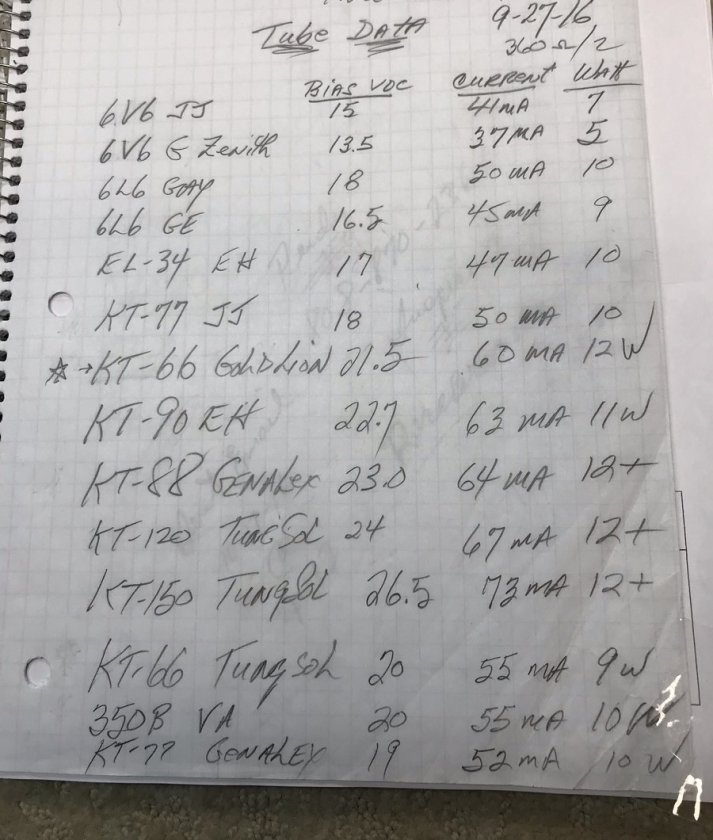 Tube Data 9-27-16
360Ω/2
Bias VDC Current Watt
6V6 JJ 15 41mA 7
6V6 G Zenith 13.5 37mA 5
6L6 18 50mA 10
6L6 GE 16.5 45mA 9
EL-34 EH 17 47mA 10
KT-77 JJ 18 50mA 10
☆→KT-66 Gold Lion 21.5 60mA 12W
KT-90 EH 22.7 63mA 11W
KT-88 Genalex 23.0 64mA 12+
KT-120 TungSol 24 67mA 12+
KT-150 TungSol 26.5 73mA 12+
KT-66 Tung Sol 20 55mA 9W
350B VA 20 55mA 10W
KT-77 Genalex 19 52mA 10W